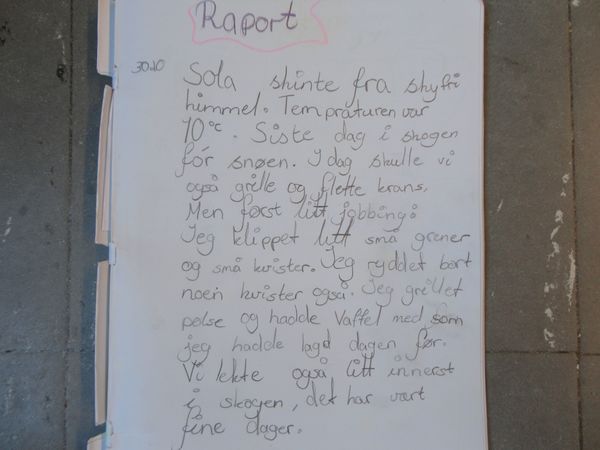 Raport
30.10
Sola skinte fra skyfri
himmel. Tempraturen var
10°C. Siste dag i skogen
før snøen. I dag skulle vi
også grille og flette krans.
Men først litt jobbing:
Jeg klippet litt små grener
og små kvister. Jeg ryddet bort
noen kvister også. Jeg grillet
pølse og hadde Vaffel med som
jeg hadde lagd dagen før.
Vi lekte også litt innerst
i skogen, det har vært
fine dager.